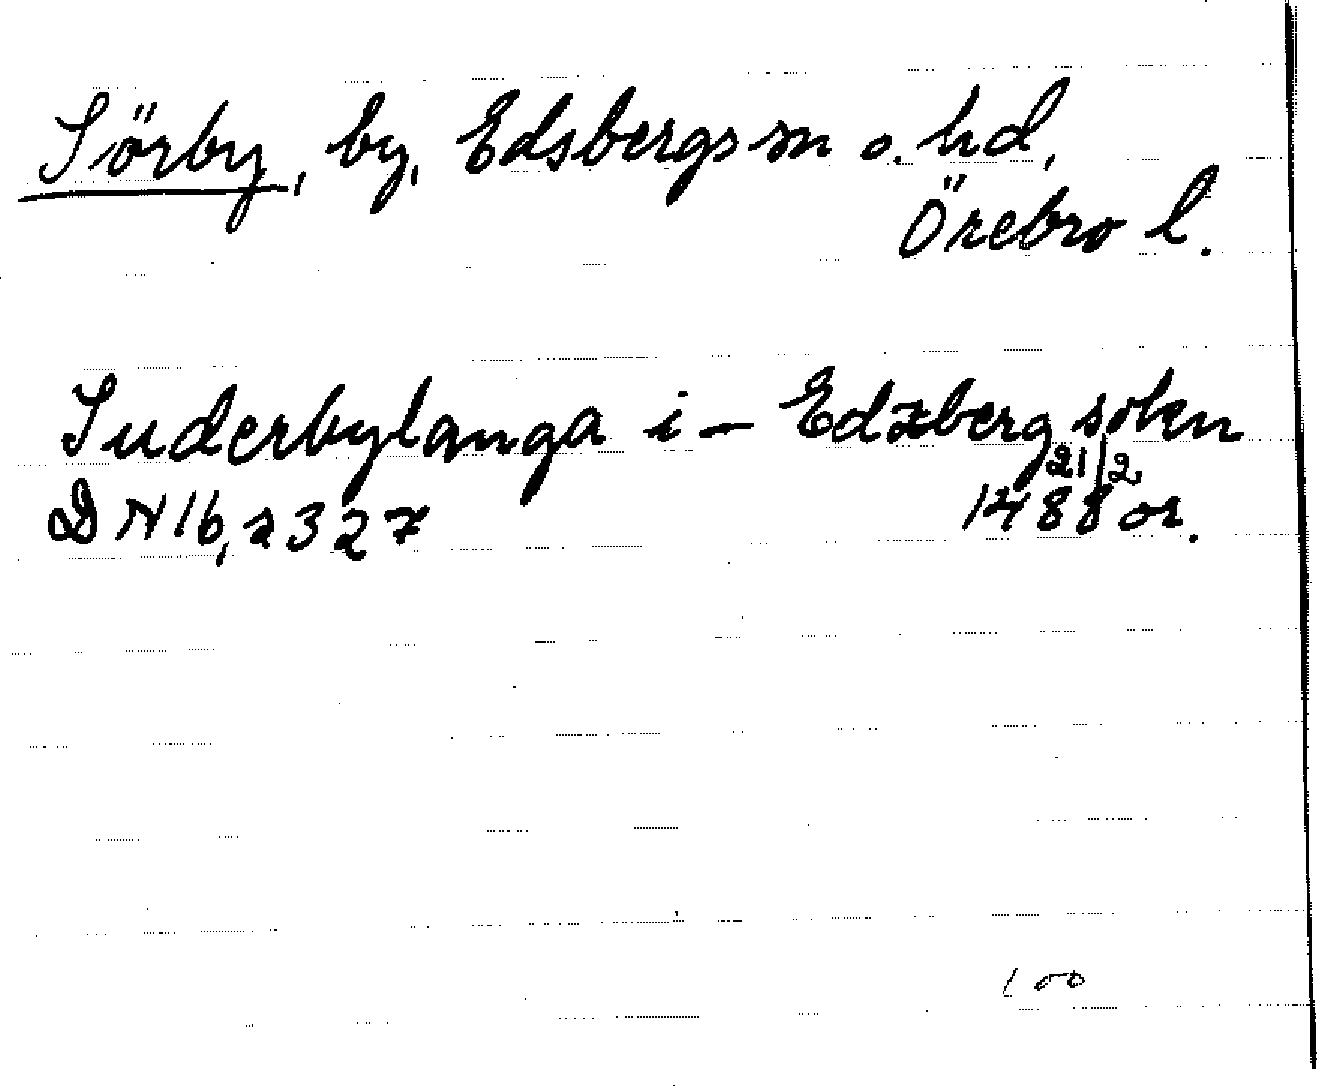 Sörby, by, Edsbergs sn o. hd,
Örebro l.
Suderbylanga i – Edzberg soken
21/2
DN 16, s 327 1488 or.
100